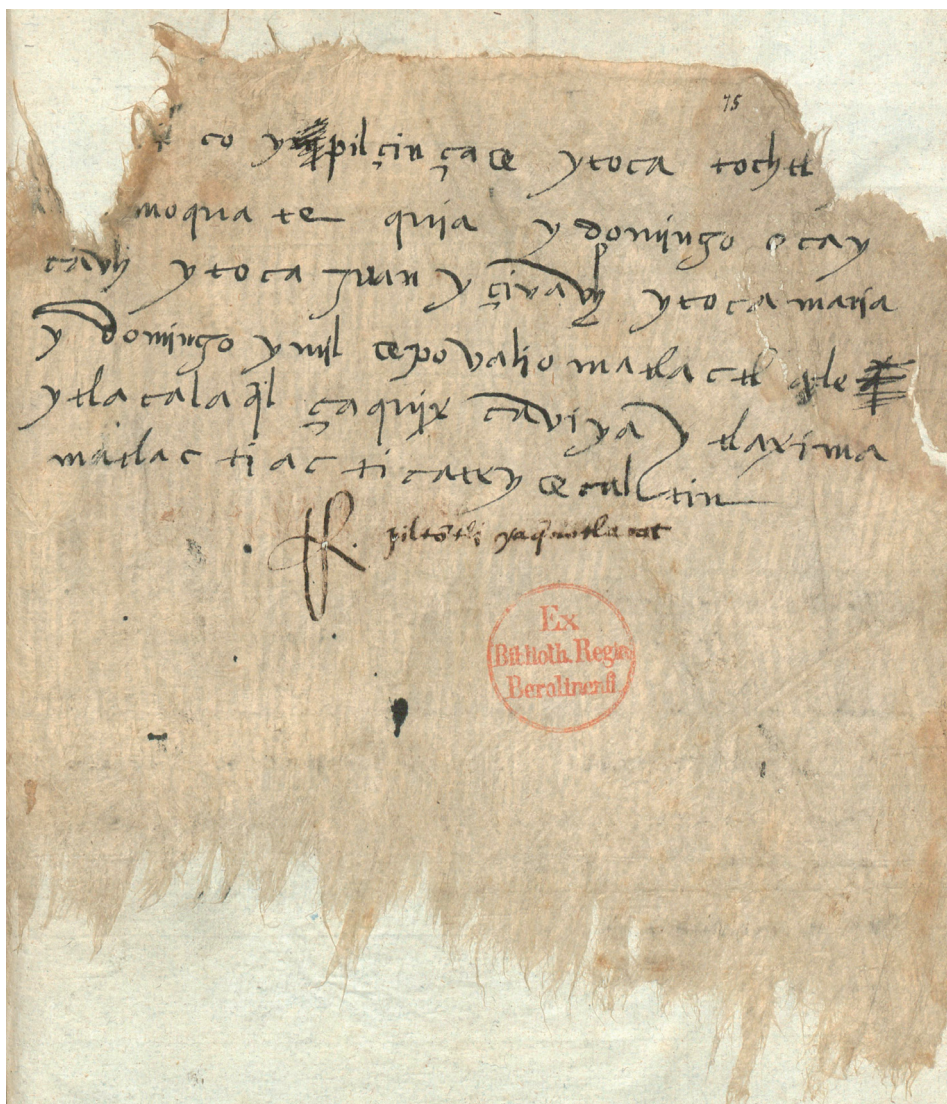 75
co y pilçin çace ytoca tochtl
moquatequia y domingo ocay
cavh ytoca Juan y çivavh ytoca maria
y domingo ymil cepovalio matlactl atle
ytlacalaq̄l çaquix caviya y tlaxima
matlac ti ac ti catey ce cal tin
Ex
Biblioth. Regia
Berolinensi